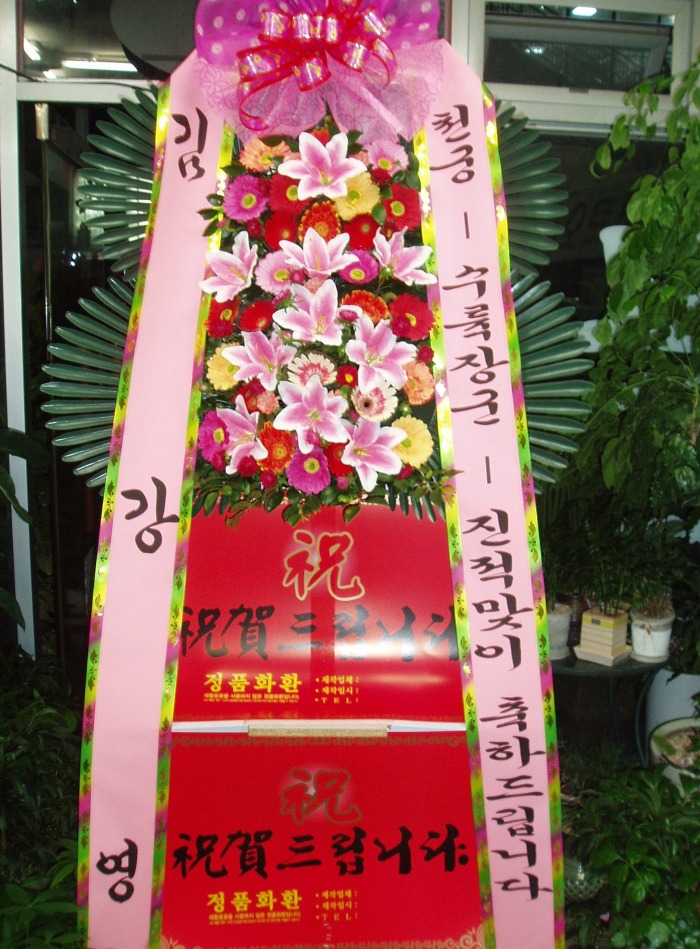 김 강 영
천궁 - 수륙장군 - 진적맞이 축하드립니다
祝
祝賀드립니다
정품화환
• 제작업체 :
• 제작일시 :
• T E L :
祝
祝賀드립니다
정품화환
• 제작업체 :
• 제작일시 :
• T E L :